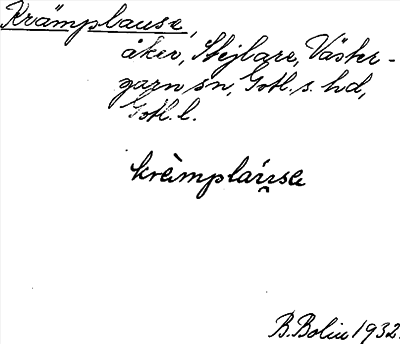 Krämplause,
åker, Stejlare, Väster-
garn sn, Gotl. s. hd,
Gotl. l.
krämpláusa
B. Bolin 1932.